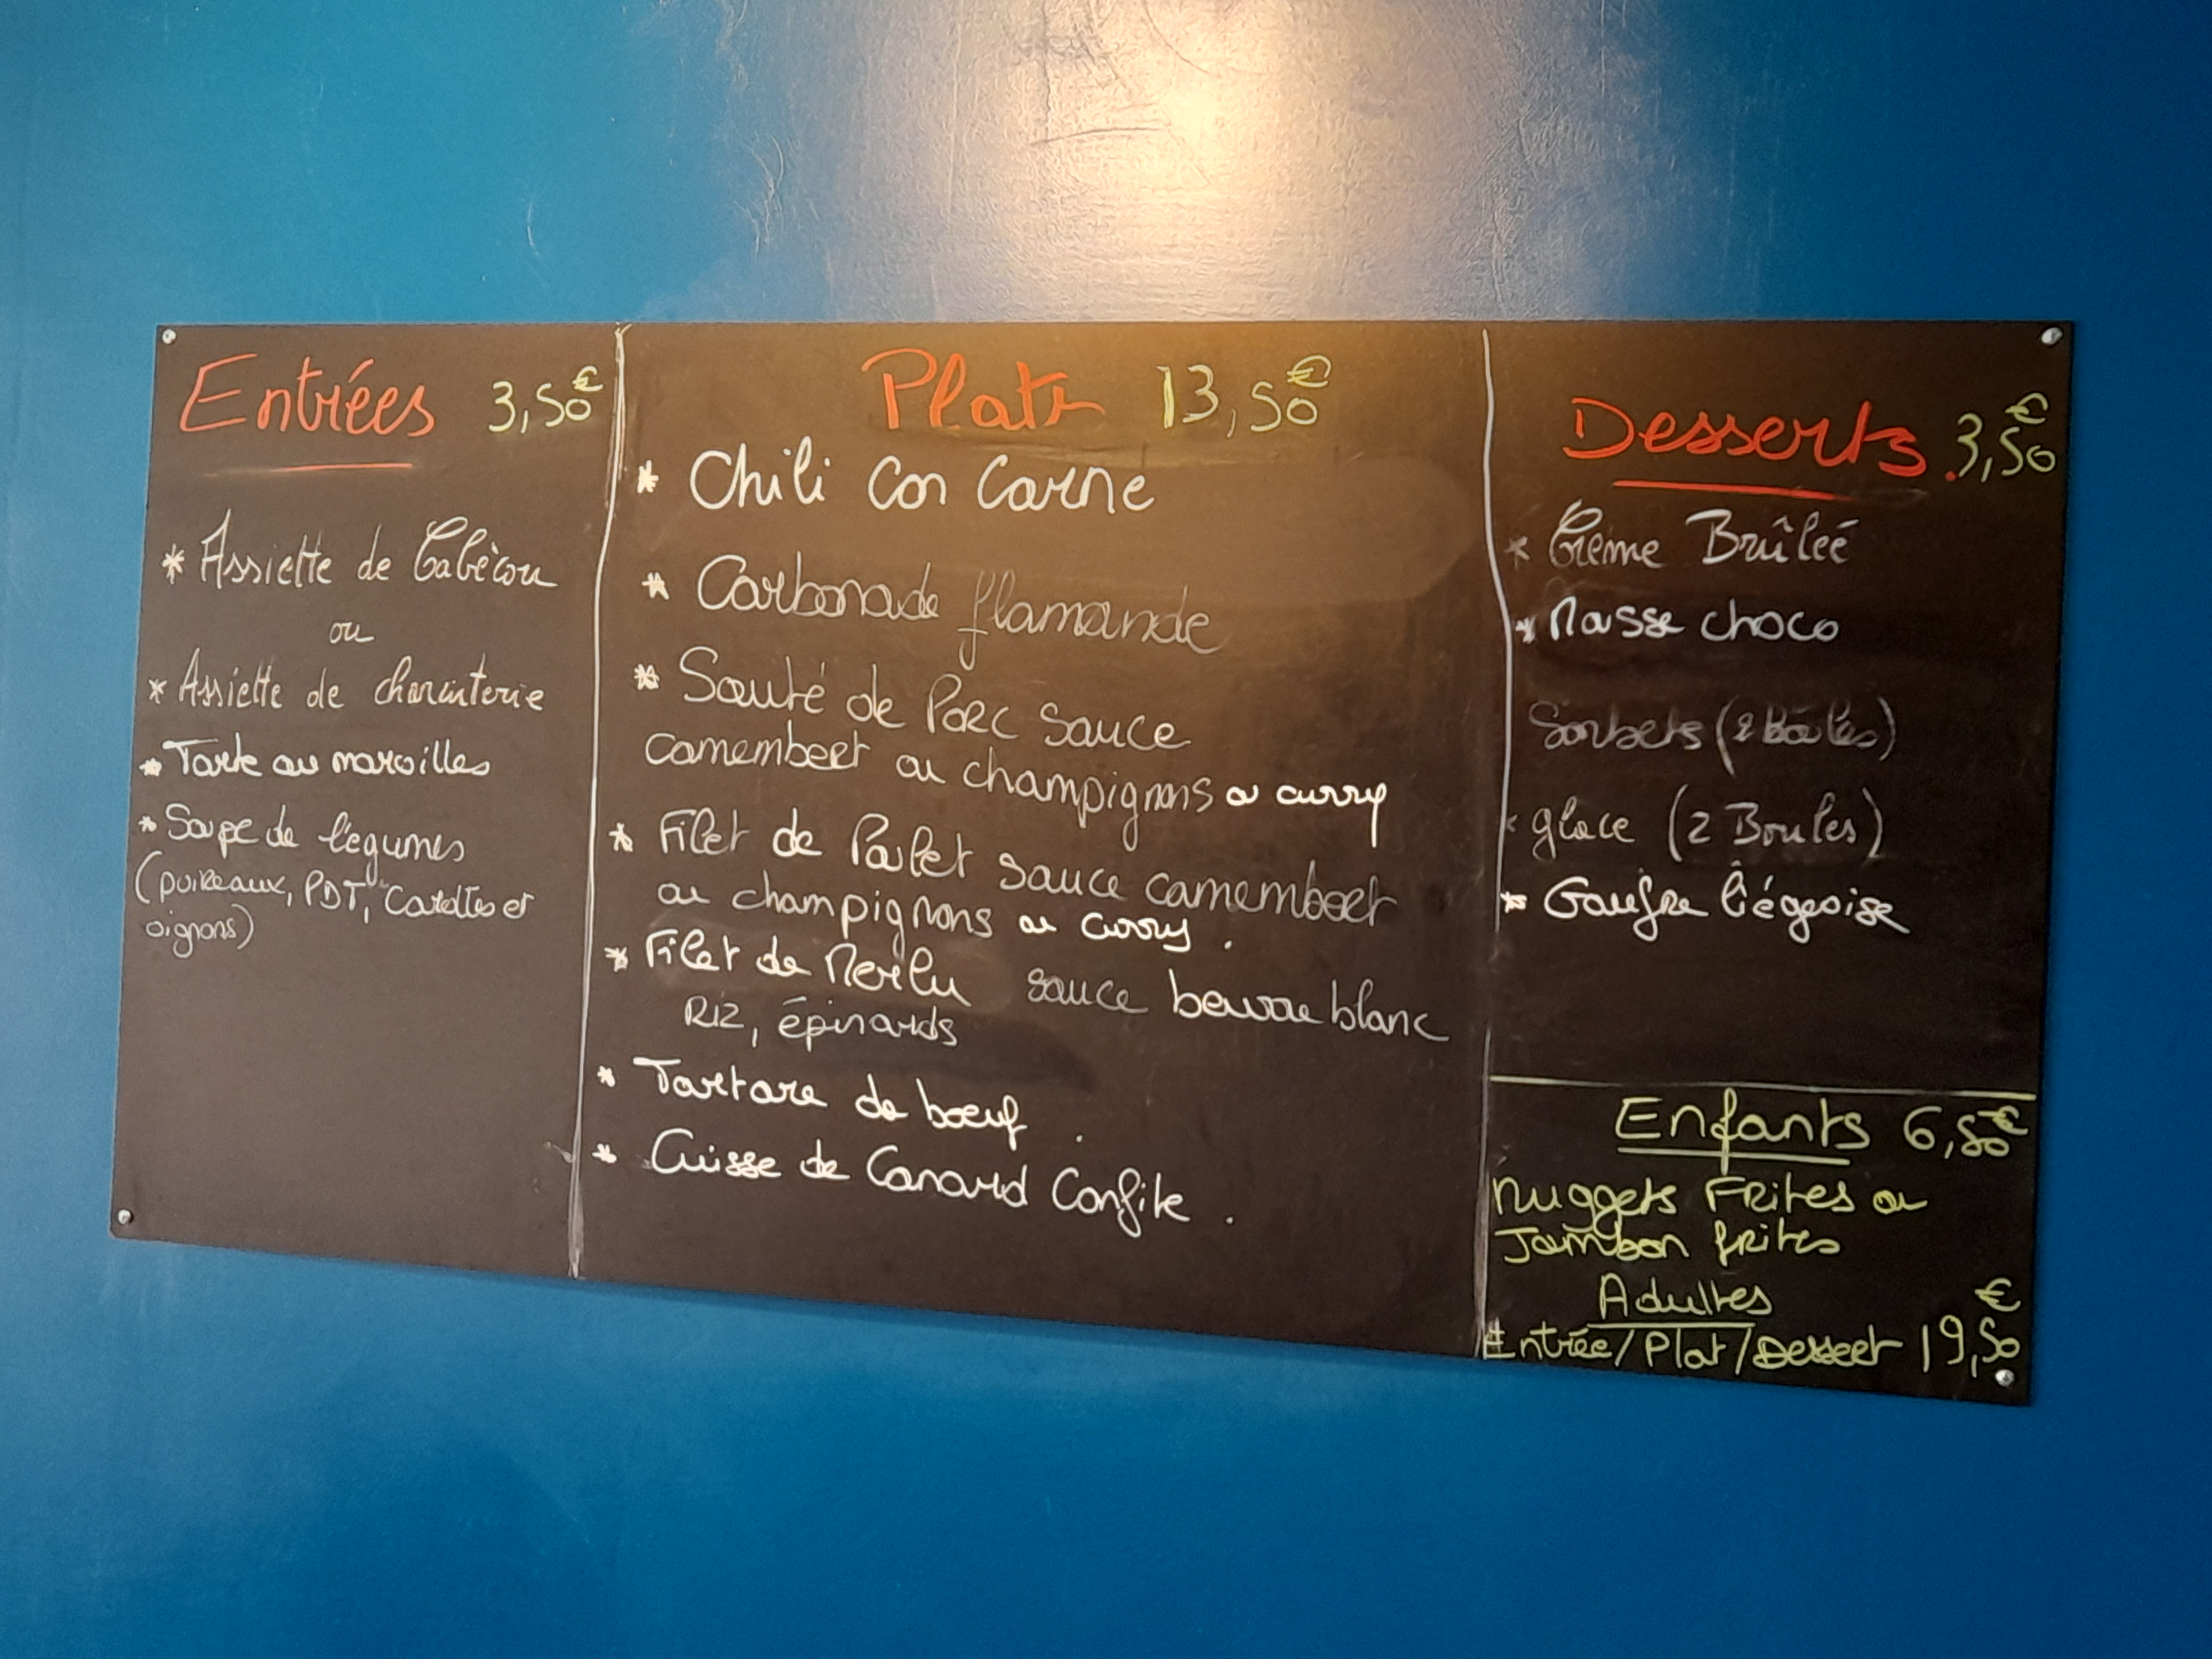 Entrées 3,50€
* Assiette de Cabécou
ou
* Assiette de charcuterie
* Tarte au maroilles
* Soupe de légumes
(poireaux, PDT, Carottes et
oignons)
Plats 13,50€
* Chili Con Carne
* Carbonade flamande
* Sauté de Porc Sauce
camembert ou champignons ou curry
* Filet de Poulet sauce camembert
ou champignons ou curry.
* Filet de Merlu sauce beurre blanc
Riz, épinards
* Tartare de bœuf.
* Cuisse de Canard Confite.
Desserts. 3,50€
* Crème Brûlée
* Mousse choco
Sorbets (2 Boules)
* glace (2 Boules)
* Gaufre liégeoise
Enfants 6,80€
Nuggets Frites ou
Jambon frites
Adultes
Entrée/Plat/Dessert 19,50€